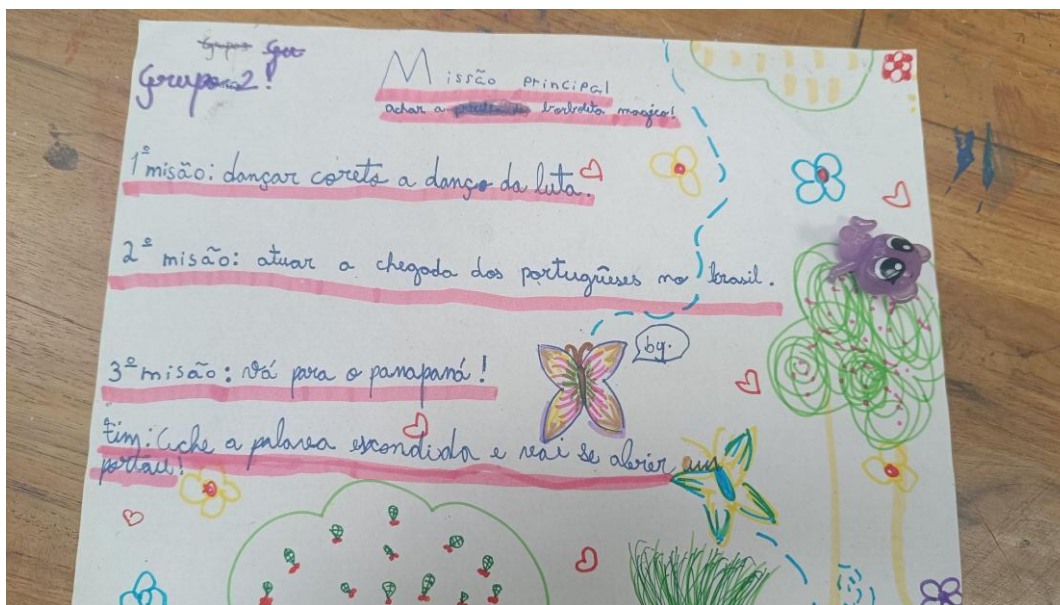 Grupo 2!
Missão principal
achar a borboleta magica!
1º misão: dançar coreto a dança da luta.
2º misão: atuar a chegada dos portuguêses no brasil.
by.
3º misão: vá para o panapaná!
fim: Ache a palavra escondida e vai se abrir um
portau!